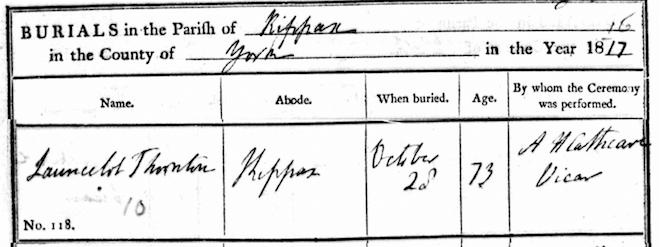 BURIALS in the Parish of Kippax 16
in the County of York in the Year 1817
Name. Abode. When buried. Age. By whom the Ceremony was performed.
Launcelot Thornton Kippax October 28 73 A H Cathcart Vicar
10
No. 118.